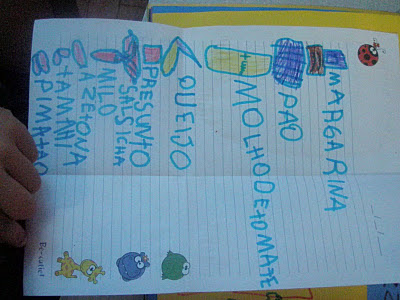 MARGARINA
PAO
MOLHODETOMATE
QUEIJO
PRESUNTO
SALSICHA
MILO
AZETONA